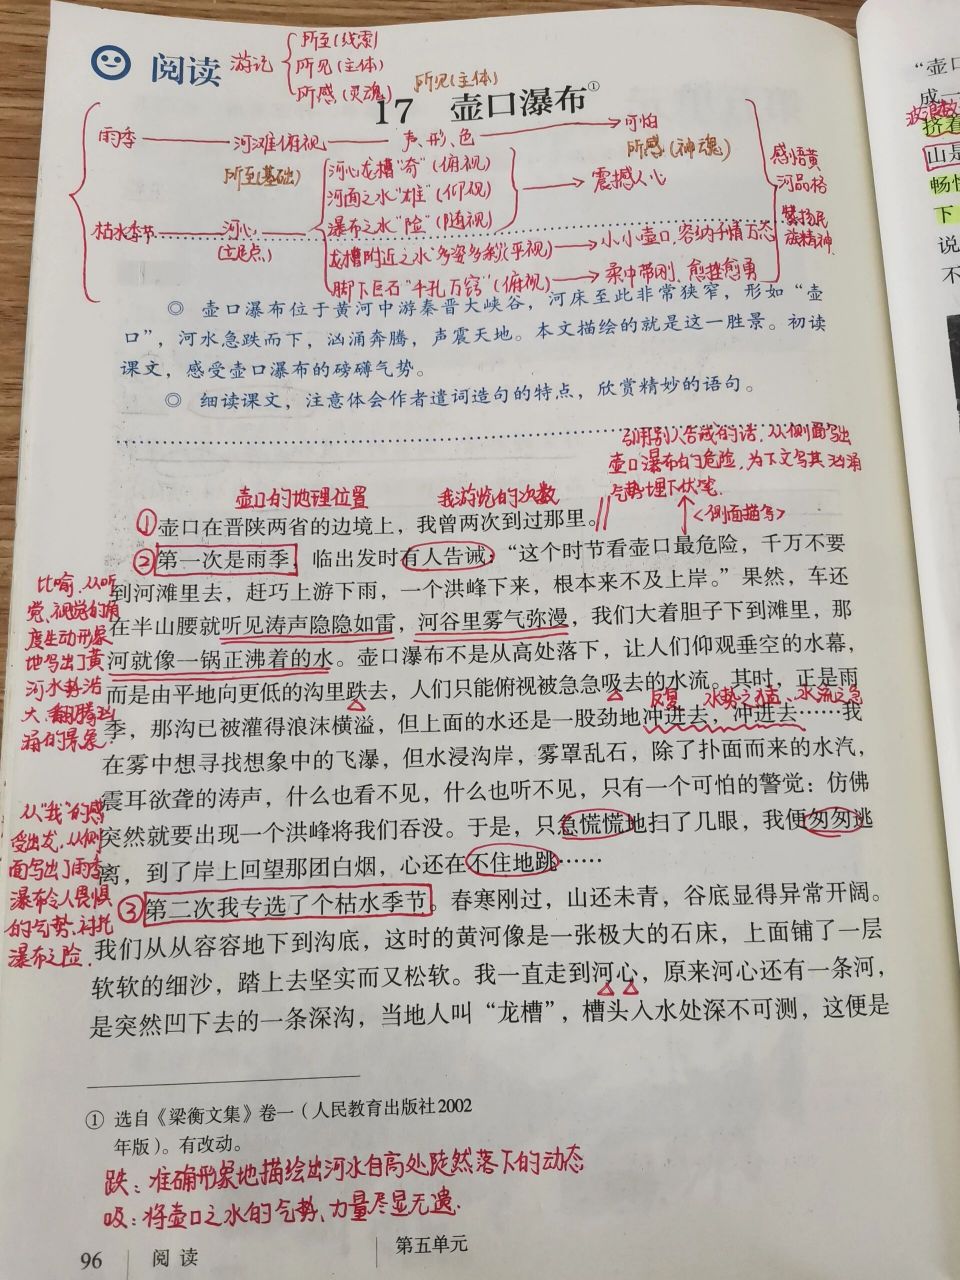 阅读
游记
所至(线索)
所见(主体)
所感(灵魂)
所见(主体)
17 壶口瀑布①
雨季 河滩俯视 声、形、色 可怕
所感(神魂)
所至(基础)
河心龙槽“奇”(俯视)
河面之水“雄”(仰视)
瀑布之水“险”
震撼人心
感悟黄
河品格
族精神
枯水季节 河心
(立足点)
龙槽附近之水“多姿多彩”(平视) 小小壶口,容纳千情万态
脚下巨石“千孔万窍”(俯视) 柔中带刚、愈挫愈勇
◎ 壶口瀑布位于黄河中游秦晋大峡谷,河床至此非常狭窄,形如“壶
口”,河水急跌而下,汹涌奔腾,声震天地。本文描绘的就是这一胜景。初读
课文,感受壶口瀑布的磅礴气势。
◎ 细读课文,注意体会作者遣词造句的特点,欣赏精妙的语句。
引用别人告诫的话,从侧面写出
壶口瀑布的危险,为下文写其汹涌
气势埋下伏笔。
<侧面描写>
壶口的地理位置 我游览的次数
①壶口在晋陕两省的边境上,我曾两次到过那里。
②第一次是雨季,临出发时有人告诫:“这个时节看壶口最危险,千万不要
到河滩里去,赶巧上游下雨,一个洪峰下来,根本来不及上岸。”果然,车还
在半山腰就听见涛声隐隐如雷,河谷里雾气弥漫,我们大着胆子下到滩里,那
河就像一锅正沸着的水。壶口瀑布不是从高处落下,让人们仰观垂空的水幕,
而是由平地向更低的沟里跌去,人们只能俯视被急急吸去的水流。其时,正是雨
反复 水流之急
季,那沟已被灌得浪沫横溢,但上面的水还是一股劲地冲进去,冲进去……我
在雾中想寻找想象中的飞瀑,但水浸沟岸,雾罩乱石,除了扑面而来的水汽,
震耳欲聋的涛声,什么也看不见,什么也听不见,只有一个可怕的警觉:仿佛
突然就要出现一个洪峰将我们吞没。于是,只急慌慌地扫了几眼,我便匆匆逃
离,到了岸上回望那团白烟,心还在不住地跳……
③第二次我专选了个枯水季节。春寒刚过,山还未青,谷底显得异常开阔。
我们从从容容地下到沟底,这时的黄河像是一张极大的石床,上面铺了一层
软软的细沙,踏上去坚实而又松软。我一直走到河心,原来河心还有一条河,
是突然凹下去的一条深沟,当地人叫“龙槽”,槽头入水处深不可测,这便是
比喻,从听
觉、视觉的角
度生动形象
地写出了黄
河水势浩
大、翻腾汹
涌的景象。
从“我”的感
受出发,从侧
面写出了雨季
瀑布令人畏惧
的气势,衬托
瀑布之险。
① 选自《梁衡文集》卷一(人民教育出版社2002
年版)。有改动。
跌:准确形象地描绘出河水自高处陡然落下的动态
吸:将壶口之水的气势、力量尽显无遗.
96 阅读 第五单元
“壶口
成一
挤着
山是
畅
下
说
不